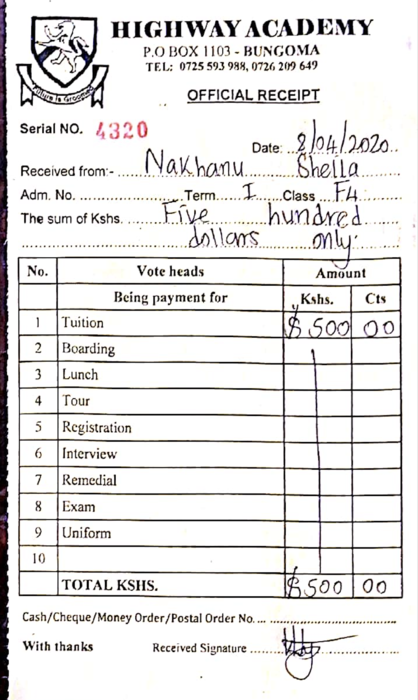 HIGHWAY ACADEMY
P.O BOX 1103 - BUNGOMA
TEL: 0725 593 988, 0726 209 649
OFFICIAL RECEIPT
Serial NO. 4320
Date: 8/04/2020
Received from:- Nakhanu Shella
Adm. No. Term I Class F4
The sum of Kshs. Five hundred
dollars only.
No. Vote heads Amount
Being payment for Kshs. Cts
1 Tuition $500 00
2 Boarding
3 Lunch
4 Tour
5 Registration
6 Interview
7 Remedial
8 Exam
9 Uniform
10
TOTAL KSHS. $500 00
Cash/Cheque/Money Order/Postal Order No.
With thanks Received Signature